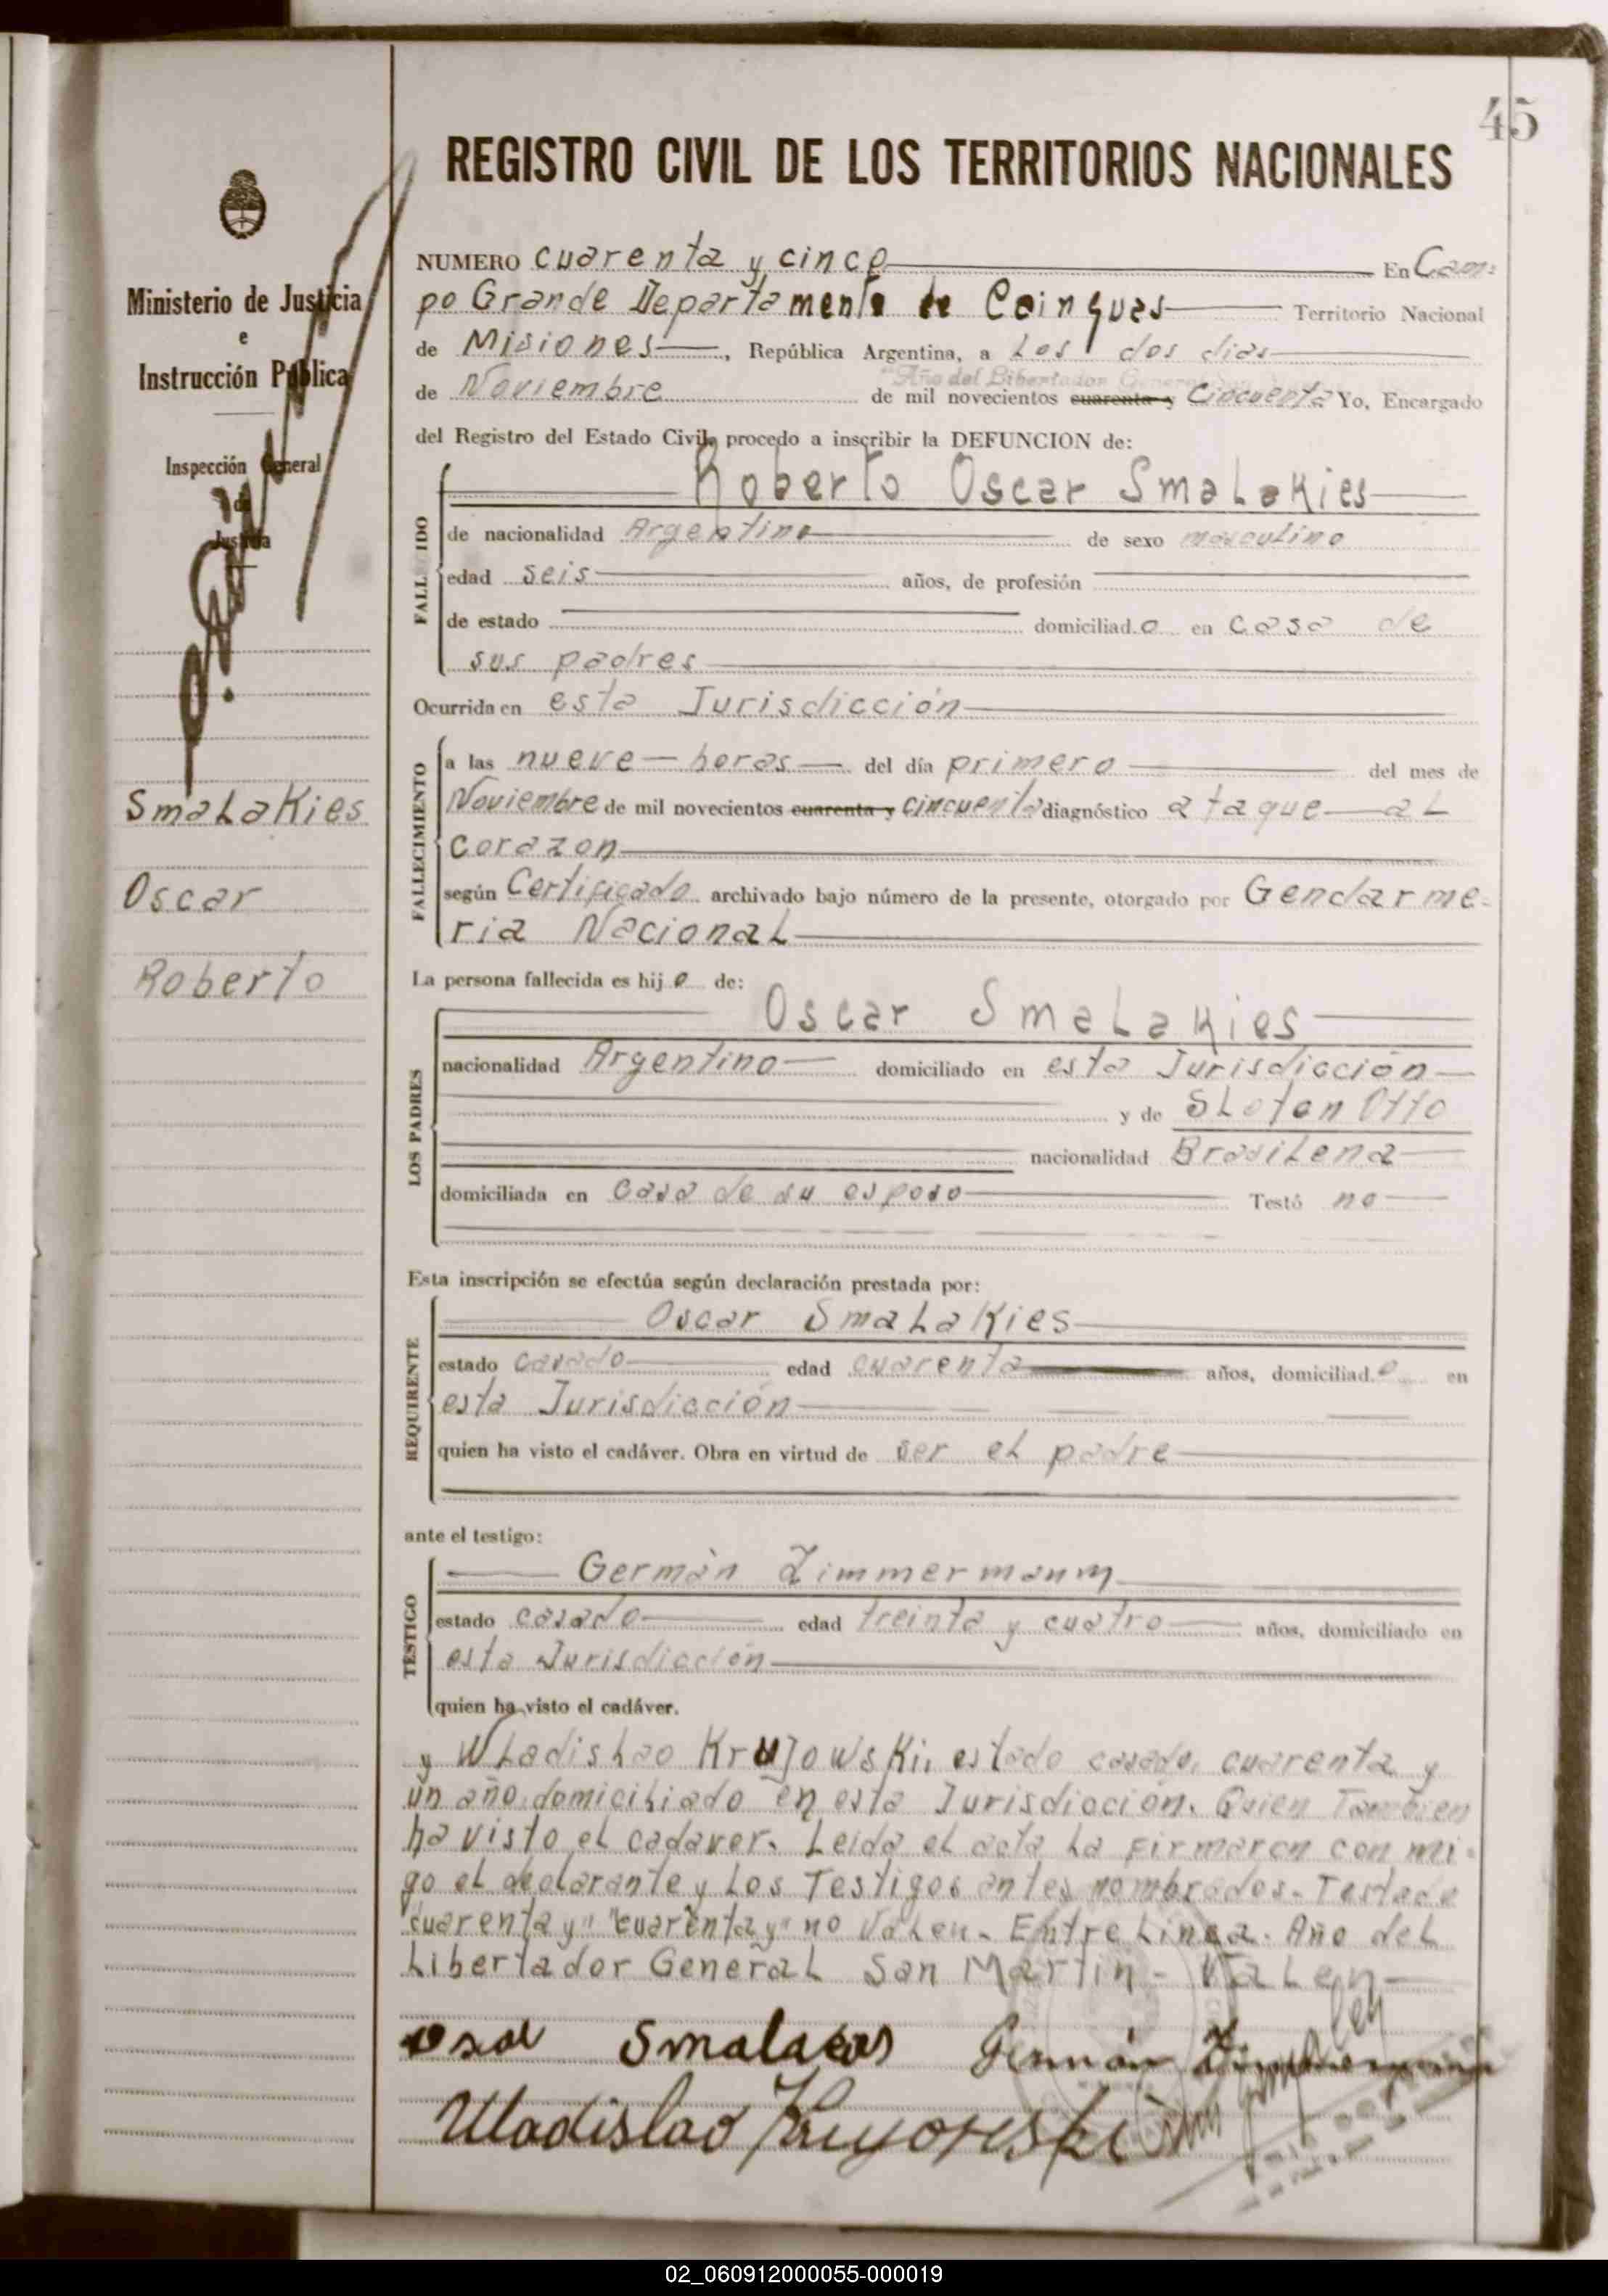 45
REGISTRO CIVIL DE LOS TERRITORIOS NACIONALES
Ministerio de Justicia
e
Instrucción Pública
Inspección General
de
Justicia
SmaLaKies
Oscar
Roberto
NUMERO cuarenta y cinco En Cam-
po Grande Departamento de Caingues Territorio Nacional
de Misiones, República Argentina, a Los dos dias
"Año del Libertador General
de Noviembre de mil novecientos cuarenta y cincuenta Yo, Encargado
del Registro del Estado Civil, procedo a inscribir la DEFUNCION de:
FALLECIDO
Roberto Oscar SmaLaKies
de nacionalidad Argentina de sexo masculino
edad seis años, de profesión
de estado domiciliado en casa de
sus padres
Ocurrida en esta Jurisdicción
FALLECIMIENTO
a las nueve horas del día primero del mes de
Noviembre de mil novecientos cuarenta y cincuenta diagnóstico ataque aL
corazon
según Certificado archivado bajo número de la presente, otorgado por Gendarme-
ria NacionaL
La persona fallecida es hijo de:
LOS PADRES
Oscar SmaLaKies
nacionalidad Argentina domiciliado en esta Jurisdicción
y de Otto
nacionalidad BrasiLena
domiciliada en casa de su esposo Testó no
Esta inscripción se efectúa según declaración prestada por:
REQUIRENTE
Oscar SmaLaKies
estado casado edad cuarenta años, domiciliado en
esta Jurisdicción
quien ha visto el cadáver. Obra en virtud de ser eL padre
ante el testigo:
TESTIGO
Germán Zimmermanm
estado casado edad treinta y cuatro años, domiciliado en
esta Jurisdicción
quien ha visto el cadáver.
y WLadisLao KruJowsKi, estado casado, cuarenta y
un año, domiciLiado en esta Jurisdicción. Quien Tambien
ha visto el cadaver. Leida eL acta La Firmaron con mi-
go eL declarante y Los Testigos antes nombrados. Testado
cuarenta y" "cuarenta y" no VaLen. Entre Linea. Año deL
Libertador GeneraL San Martin - VaLen
Smalakies Germán Zimmermann
Uladislao
02_060912000055-000019